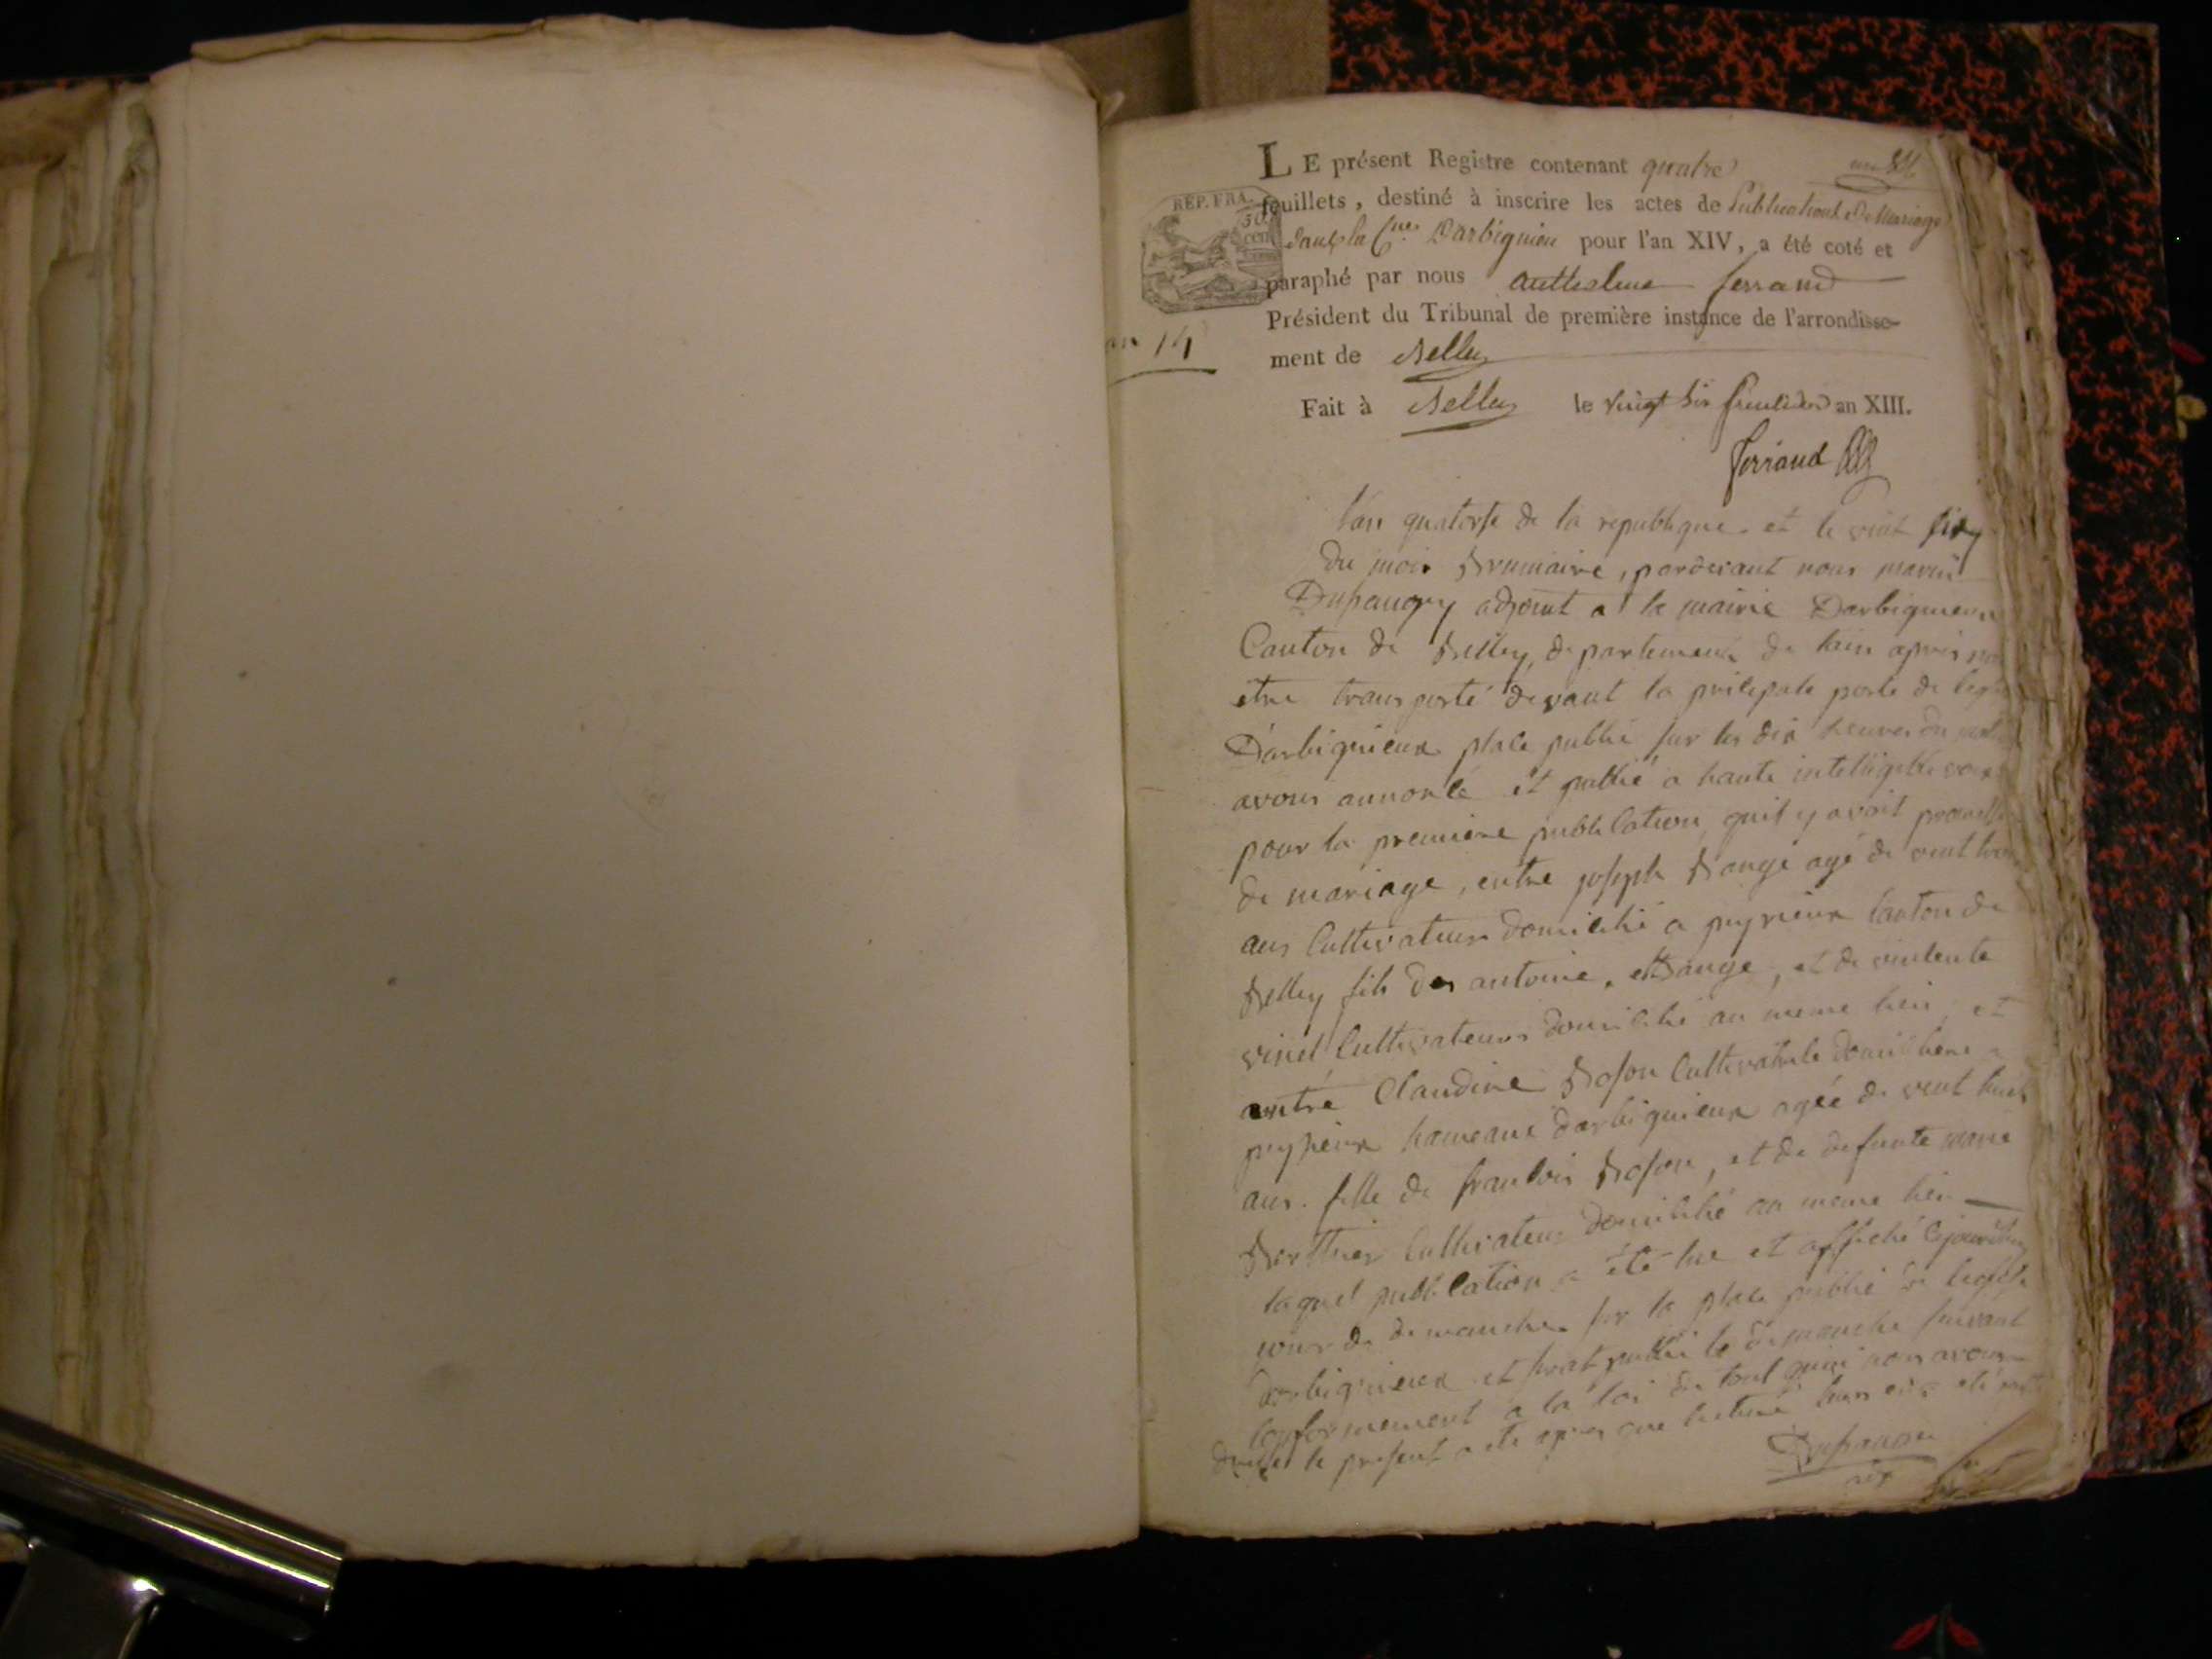 LE présent Registre contenant quatre
feuillets, destiné à inscrire les actes de Publications De Mariage
dans la Cne Darbignieu pour l'an XIV, a été coté et
paraphé par nous Anthelme ferrand
Président du Tribunal de première instance de l'arrondisse-
ment de Belley
Fait à Belley le vingt six fructidor an XIII.
ferrand
REP. FRA.
50
cent
an 14
l'an quatorse de la republique et le vint six
du mois Brumaire, pardevant nous
Dupaugey adjoint a la mairie Darbignieux
Canton de Belley, departement de lain apres
etre transporté devant la prilepale porte de
Darbignieux place publié sur les dix heures du
avons annonlé et publié a haute intelligible voix
pour la premiere publilation, quil y avoit
de mariage, entre joseph Bange agé de vint
ans Cultivateur domicilié a peyrieux Canton de
Belley fils des antoine Bange, et de vinlente
vinel Cultivateurs domicilié au meme lieu, et
entre Claudine Boson Cultivatrile domiciliere a
peyzieux hameaux darbignieux agée de vint huit
ans. fille de franlois Boson, et de defunte marie
Berthier Cultivateur domicilié au meme lieu
laquel publilation a été lue et affiché
jour de dimanche sur la place publié
darbignieux et serat publié le dimanche suivant
Conformement a la loi du tout quoi nous avons
dressé le present acte apres que lecture leurs en a été
Dupaugey
adj